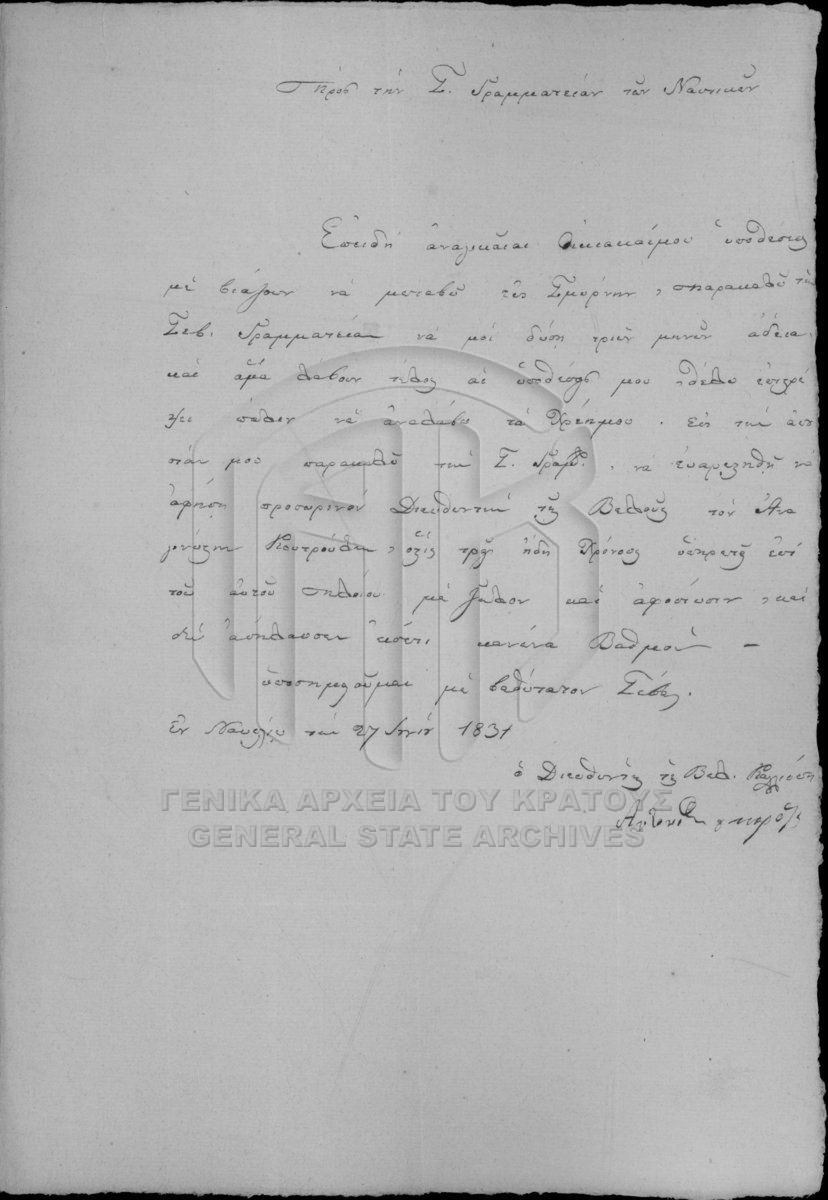 Πρὸς τὴν Σ. Γραμματείαν τῶν Ναυτικῶν
Ἐπειδὴ ἀναγκαῖαι οἰκιακαίμου ὑποθέσεις
μὲ βιάζουν νὰ μεταβῶ εἰς Σμύρνην, παρακαλῶ τὴν
Σεβ. Γραμματείαν νὰ μοὶ δώσῃ τριῶν μηνῶν ἄδειαν
καὶ ἅμα λάβουν τέλος αἱ ὑποθέσεις μου, θέλω ἐπιστρέ
ψει πάλιν νὰ ἀναλάβω τὰ χρέημου. Εἰς τὴν ἀπου
σίαν μου παρακαλῶ τὴν Σ. Γραμ. νὰ εὐαρεστηθῇ νὰ
ἀφήσῃ προσωρινὸν Διευθυντὴν τοῦ Βελλοῦς τὸν Ἀνα
γνώστην, ὅστις τρεῖς ἤδη χρόνους ὑπηρετεῖ ἐπὶ
τοῦ αὐτοῦ πλοίου μὲ ζῆλον καὶ ἀφοσίωσιν, καὶ
δὲν ἀπήλαυσεν ἀκόμη κανένα Βαθμόν —
ὑποσημειοῦμαι μὲ βαθύτατον Σέβας.
Ἐν Ναυπλίῳ τὴν 27 1831
ὁ Διευθυντὴς τοῦ Βελ.
ΓΕΝΙΚΑ ΑΡΧΕΙΑ ΤΟΥ ΚΡΑΤΟΥΣ
GENERAL STATE ARCHIVES